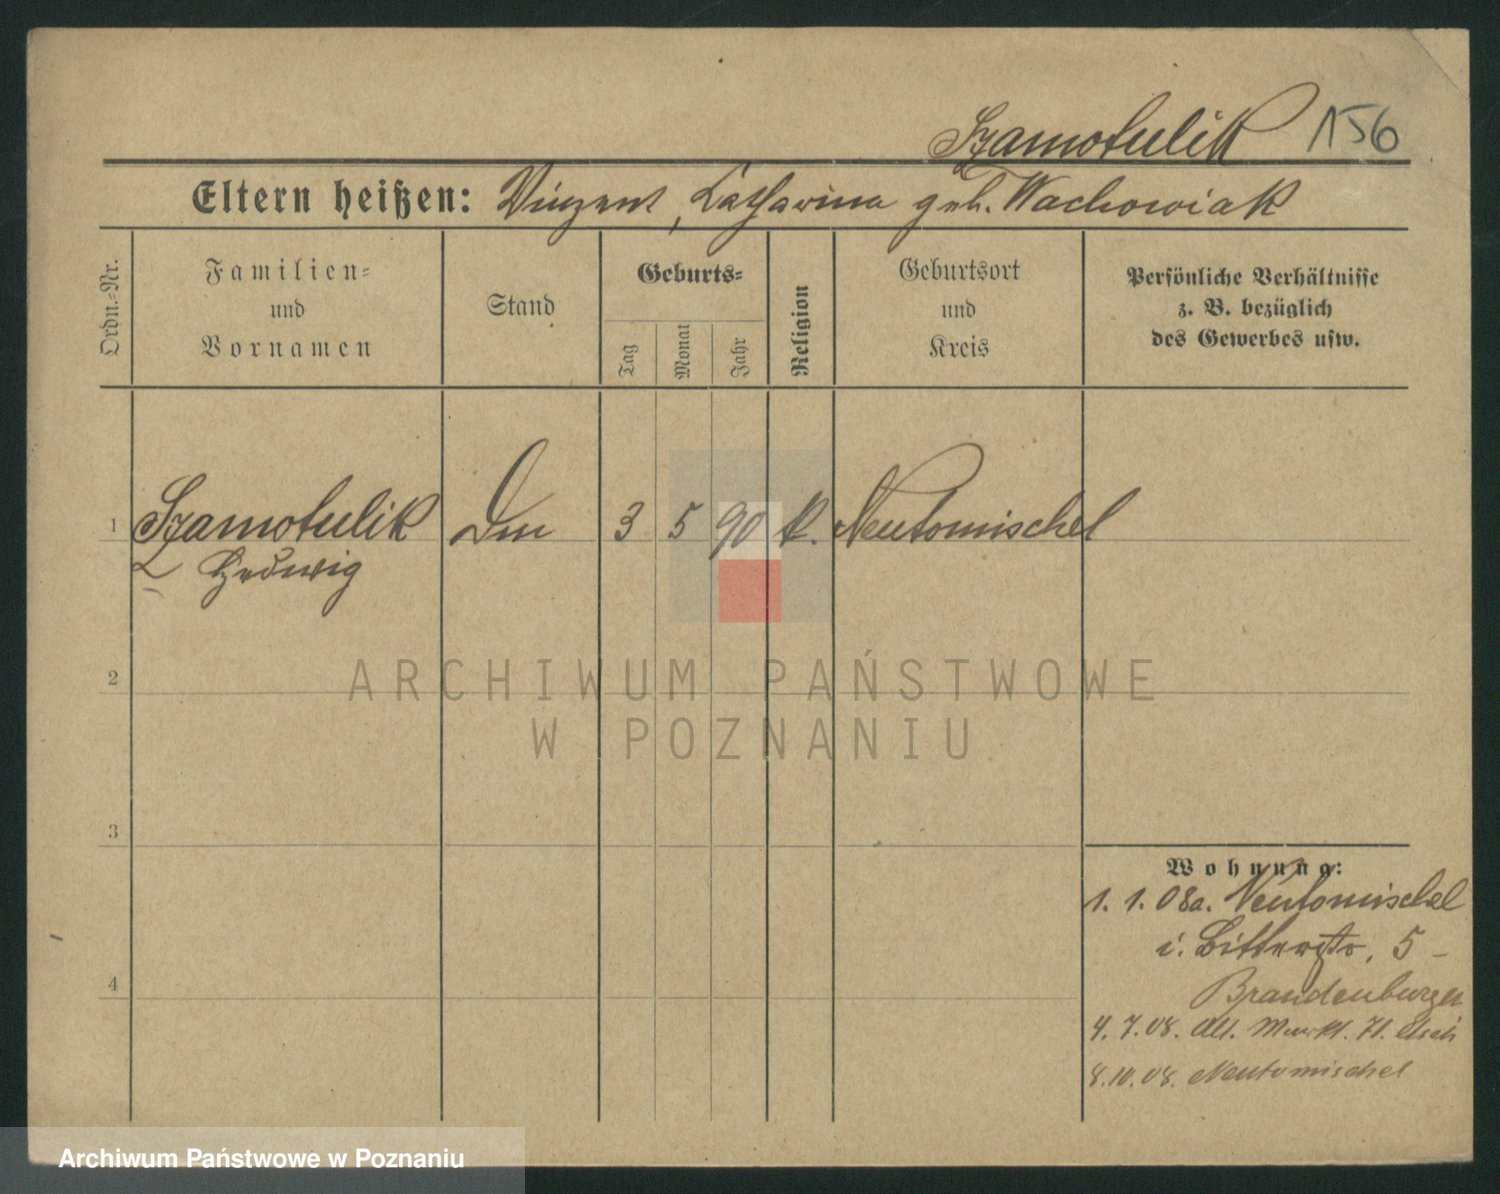 Szamotulik 156
Eltern heißen: Vinzent, Katharina geb. Wachowiak
Ordn.-Nr.
Familien-
und
Vornamen
Stand
Geburts-
Tag
Monat
Jahr
Religion
Geburtsort
und
Kreis
Persönliche Verhältnisse
z. B. bezüglich
des Gewerbes usw.
1 Szamotulik Dm 3 5 90 k. Neutomischel
Hedwig
2
ARCHIWUM PAŃSTWOWE
W POZNANIU
3
Wohnung:
1. 1. 08 a. Neutomischel
i. Bitterstr. 5 -
Brandenburger
4
4. 7. 08. Alt. Markt. 71.
8. 10. 08. Neutomischel
Archiwum Państwowe w Poznaniu